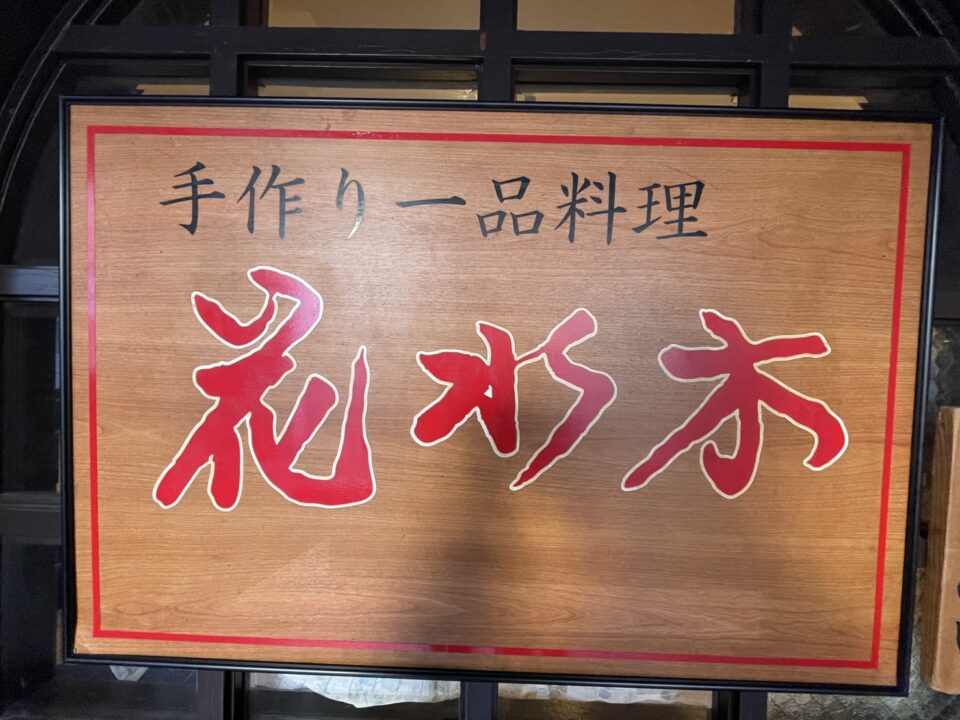 手作り一品料理
花水木